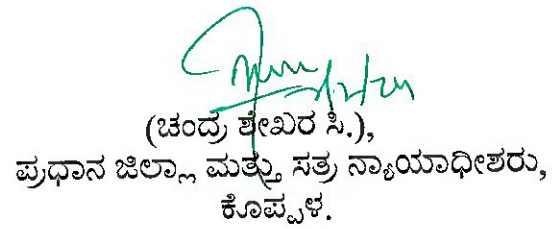 (ಚಂದ್ರ ಶೇಖರ ಸಿ.),
ಪ್ರಧಾನ ಜಿಲ್ಲಾ ಮತ್ತು ಸತ್ರ ನ್ಯಾಯಾಧೀಶರು,
ಕೊಪ್ಪಳ.